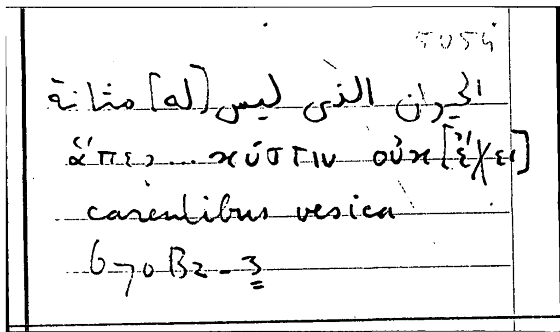 5054
الحيوان الذى ليس [له] مثانة
ἅπερ ... κύστιν οὐκ [ἔχει]
carentibus vesica
670 B2-3